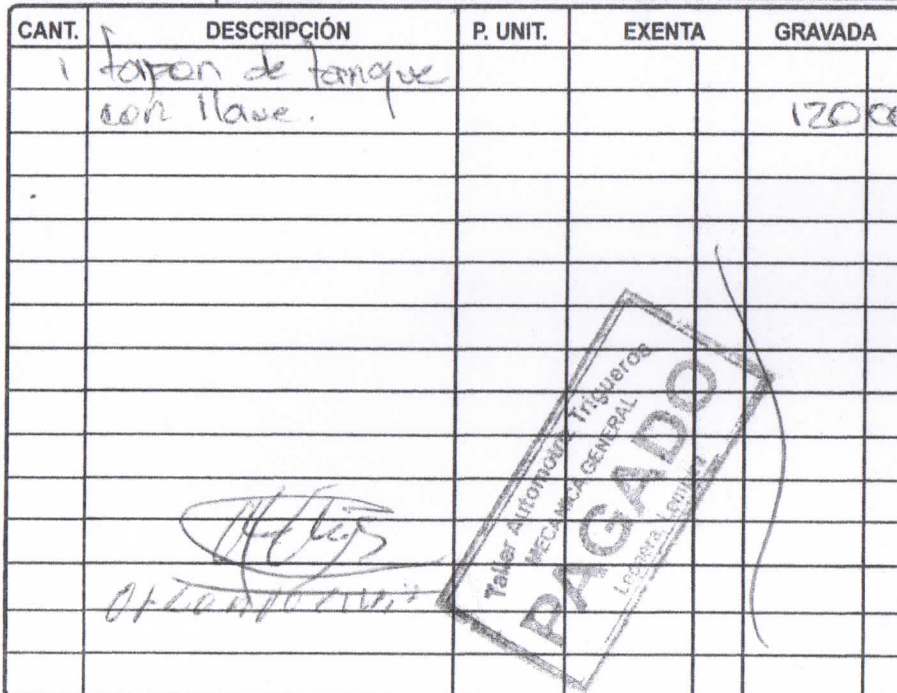 CANT. DESCRIPCIÓN P. UNIT. EXENTA GRAVADA
1 tapon de tanque
con llave. 120 00
Taller Automotriz Trigueros
MECANICA GENERAL
PAGADO
Lempira